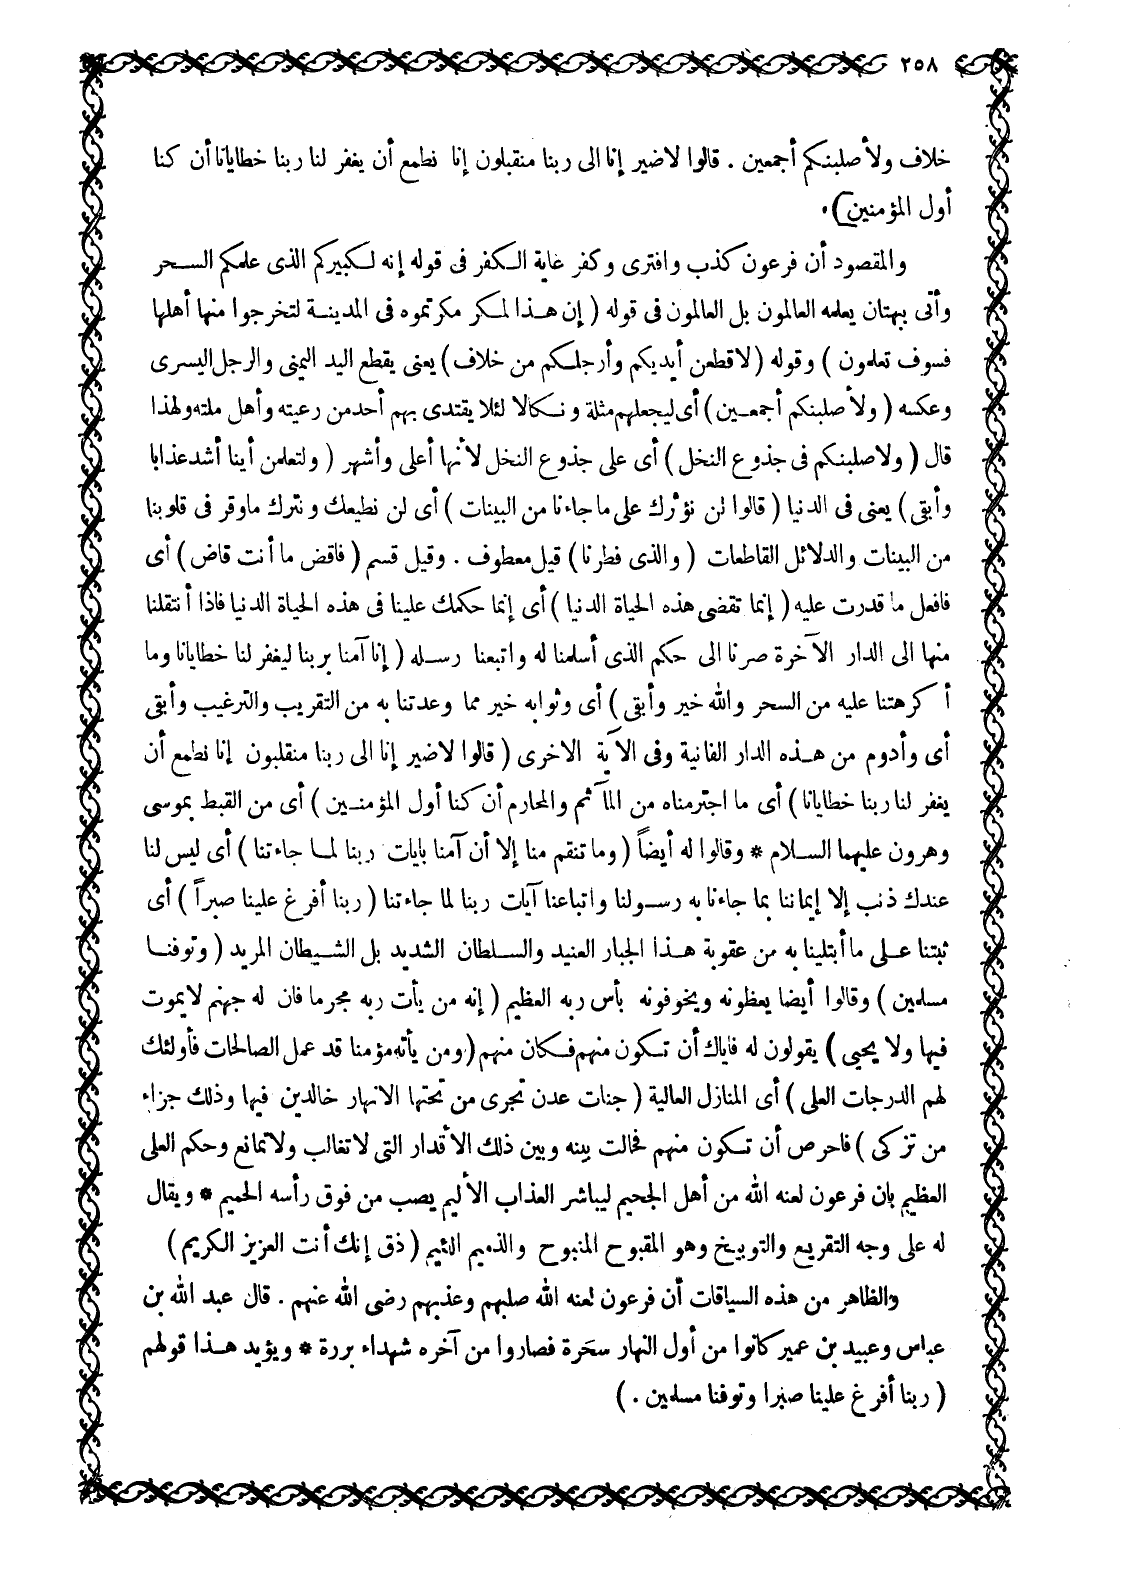 ٢٥٨
خلاف ولأصلبنكم أجمعين . قالوا لاضير إنا الى ربنا منقبلون إنا نطمع أن يغفر لنا ربنا خطايانا أن كنا
أول المؤمنين).
والمقصود أن فرعون كذب وافترى وكفر غاية الكفر فى قوله إنه لكبيركم الذى علمكم السحر
وأتى ببهتان يعلمه العالمون بل العالمون فى قوله ( إن هذا لمكر مكرتموه فى المدينة لتخرجوا منها أهلها
فسوف تعلمون ) وقوله ( لاقطعن أيديكم وأرجلكم من خلاف ) يعنى يقطع اليد اليمنى والرجل اليسرى
وعكسه ( ولأصلبنكم أجمعين ) أى ليجعلهم مثلة ونكالا لئلا يقتدى بهم أحد من رعيته وأهل ملته ولهذا
قال ( ولاصلبنكم فى جذوع النخل ) أى على جذوع النخل لأنها أعلى وأشهر ( ولتعلمن أينا أشد عذابا
وأبقى ) يعنى فى الدنيا ( قالوا لن نؤثرك على ما جاءنا من البينات ) أى لن نطيعك ونترك ماوقر فى قلوبنا
من البينات والدلائل القاطعات ( والذى فطرنا ) قيل معطوف . وقيل قسم ( فاقض ما أنت قاض ) أى
فافعل ما قدرت عليه ( إنما تقضى هذه الحياة الدنيا ) أى إنما حكمك علينا فى هذه الحياة الدنيا فاذا أنتقلنا
منها الى الدار الآخرة صرنا الى حكم الذى أسلمنا له واتبعنا رسله ( إنا آمنا بربنا ليغفر لنا خطايانا وما
أكرهتنا عليه من السحر والله خير وأبقى ) أى وثوابه خير مما وعدتنا به من التقريب والترغيب وأبقى
أى وأدوم من هذه الدار الفانية وفى الآية الاخرى ( قالوا لاضير إنا الى ربنا منقلبون إنا نطمع أن
يغفر لنا ربنا خطايانا ) أى ما اجترمناه من المآثم والمحارم أن كنا أول المؤمنين ) أى من القبط بموسى
وهرون عليهما السلام * وقالوا له أيضاً ( وما تنقم منا إلا أن آمنا بايات ربنا لما جاءتنا ) أى ليس لنا
عندك ذنب إلا إيماننا بما جاءنا به رسولنا واتباعنا آيات ربنا لما جاءتنا ( ربنا أفرغ علينا صبراً ) أى
ثبتنا على ما أبتلينا به من عقوبة هذا الجبار العنيد والسلطان الشديد بل الشيطان المريد ( وتوفنا
مسلمين ) وقالوا أيضا يعظونه ويخوفونه بأس ربه العظيم ( إنه من يأت ربه مجرما فان له جهنم لايموت
فيها ولا يحيى ) يقولون له فاياك أن تكون منهم فكان منهم ( ومن يأته مؤمنا قد عمل الصالحات فأولئك
لهم الدرجات العلى ) أى المنازل العالية ( جنات عدن تجرى من تحتها الانهار خالدين فيها وذلك جزاء
من تزكى ) فاحرص أن تكون منهم فحالت بينه وبين ذلك الأقدار التى لاتغالب ولاتمانع وحكم العلى
العظيم بان فرعون لعنه الله من أهل الجحيم ليباشر العذاب الأليم يصب من فوق رأسه الحميم * ويقال
له على وجه التقريع والتوبيخ وهو المقبوح المنبوح والذميم اللئيم ( ذق إنك أنت العزيز الكريم )
والظاهر من هذه السياقات أن فرعون لعنه الله صلبهم وعذبهم رضى الله عنهم . قال عبد الله بن
عباس وعبيد بن عمير كانوا من أول النهار سحَرة فصاروا من آخره شهداء بررة * ويؤيد هذا قولهم
( ربنا أفرغ علينا صبرا وتوفنا مسلمين . )